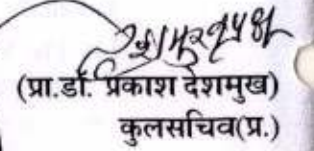 (प्रा.डॉ. प्रकाश देशमुख)
कुलसचिव(प्र.)